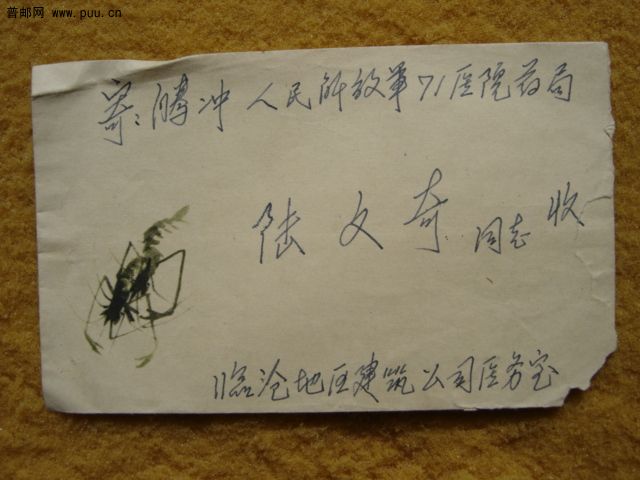 普邮网 www.puu.cn
寄:腾冲 人民解放军71医院药局
陆文奇 同志 收
临沧地区建筑公司医务室